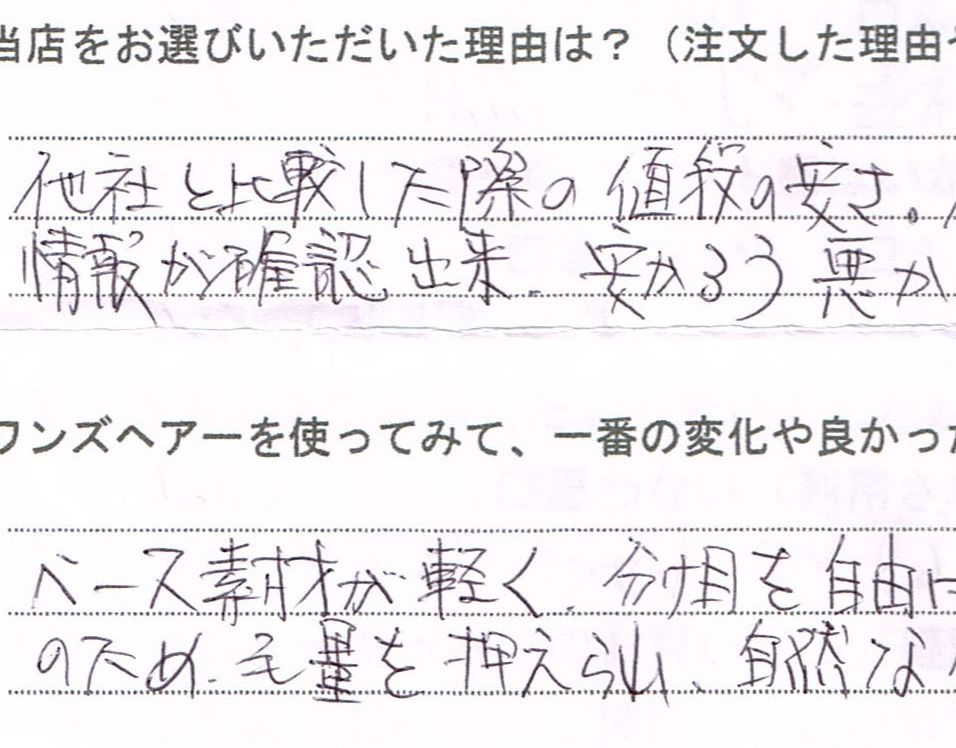 当店をお選びいただいた理由は？（注文した理由
他社と比較した際の値段の安さ。
情報が確認出来、安かろう悪か
ワンズヘアーを使ってみて、一番の変化や良かっ
ベース素材が軽く、分け目を自由に
のため、毛量を押えられ、自然な